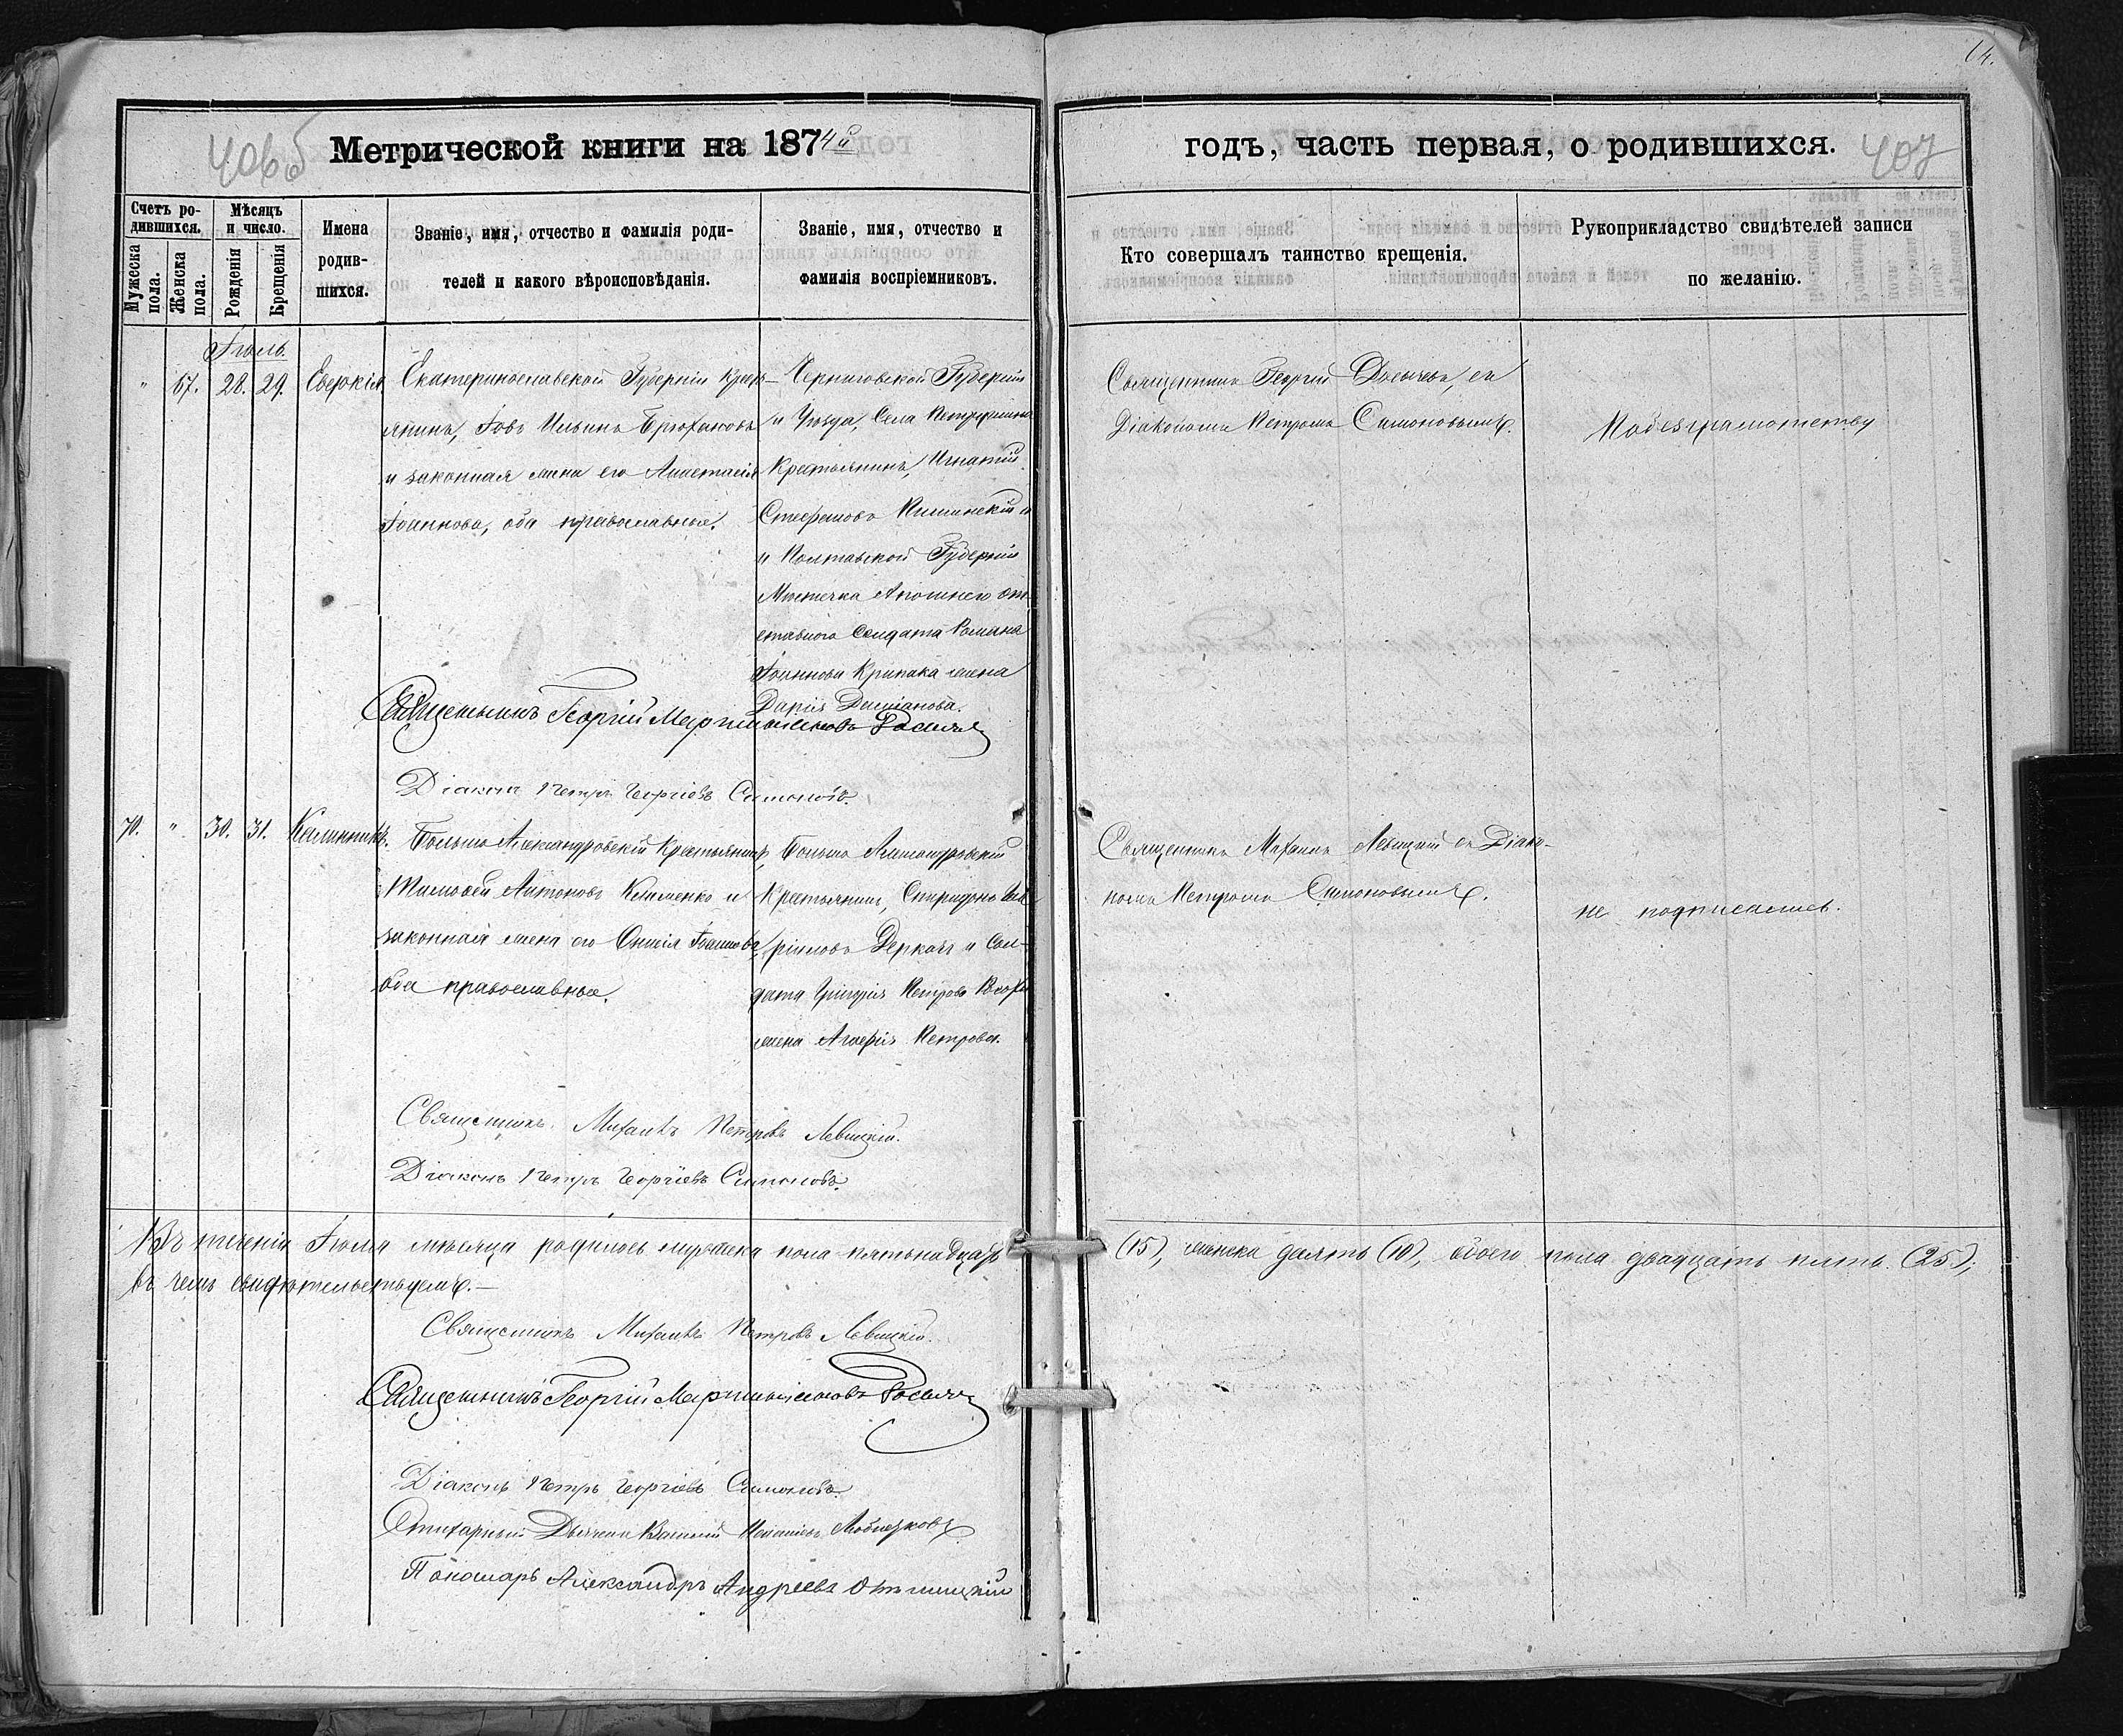 14.
406 б
Метрической книги на 1874й
годъ, часть первая, о родившихся.
407
Счетъ ро-
дившихся.
Мѣсяцъ
и число.
Мужеска
пола.
Женска
пола.
Рожденія
Крещенія
Имена
родив-
шихся.
Званіе, имя, отчество и фамилія роди-
телей и какого вѣроисповѣданія.
Званіе, имя, отчество и
фамилія воспріемниковъ.
Кто совершалъ таинство крещенія.
Рукоприкладство свидѣтелей записи
по желанію.
Іюль.
" 67. 28. 29.
Екатеринославской Губерніи Крест-
янинъ, Іовъ Ильинъ Брюхановъ
и законная жена его Анастасія
Іоаннова, оба православные.
Черниговской Губерніи
и Уѣзда, Села Петрушина
Крестьянинъ, Игнатій
Стефановъ
и Полтавской Губерніи
Мѣстечка от-
ставного Солдата Романа
Іоаннова Крипака жена
Дарія Даміанова.
Священникъ Георгій съ
Діакономъ Петромъ Симоновымъ.
По безграмотству
Священникъ Георгій
Діаконъ Петръ Георгіевъ Симоновъ.
70. " 30. 31. Калинникъ.
Больше Александровскій Крестьянинъ,
Тимоѳей Антоновъ Клименко и
законная жена его Іоаннова,
оба православные.
Больше Александровскій
Крестьянинъ, Спиридонъ
Деркачъ и Сол-
дата Григорія Петрова
жена Петрова.
Священникъ Михаилъ Левицкій съ Діако-
номъ Петромъ Симоновымъ.
не подписались.
Священникъ Михаилъ Петровъ Левицкій.
Діаконъ Петръ Георгіевъ Симоновъ.
Въ теченіи Іюля мѣсяца родилось мужеска пола пятьнадцать (15), женска десять (10), обоего пола двадцать пять (25);
въ чемъ свидѣтельствуемъ.—
Священникъ Михаилъ Петровъ Левицкій.
Священникъ Георгій
Діаконъ Петръ Георгіевъ Симоновъ.
Стихарный Дьячекъ Василій
Пономарь Александръ Андреевъ